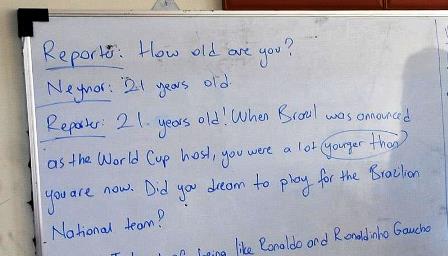 Reporter: How old are you?
Neymar: 21 years old.
Reporter: 21 years old! When Brazil was announced
as the World Cup host, you were a lot younger than
you are now. Did you dream to play for the Brazilian
National team?
being like Ronaldo and Ronaldinho Gaucho